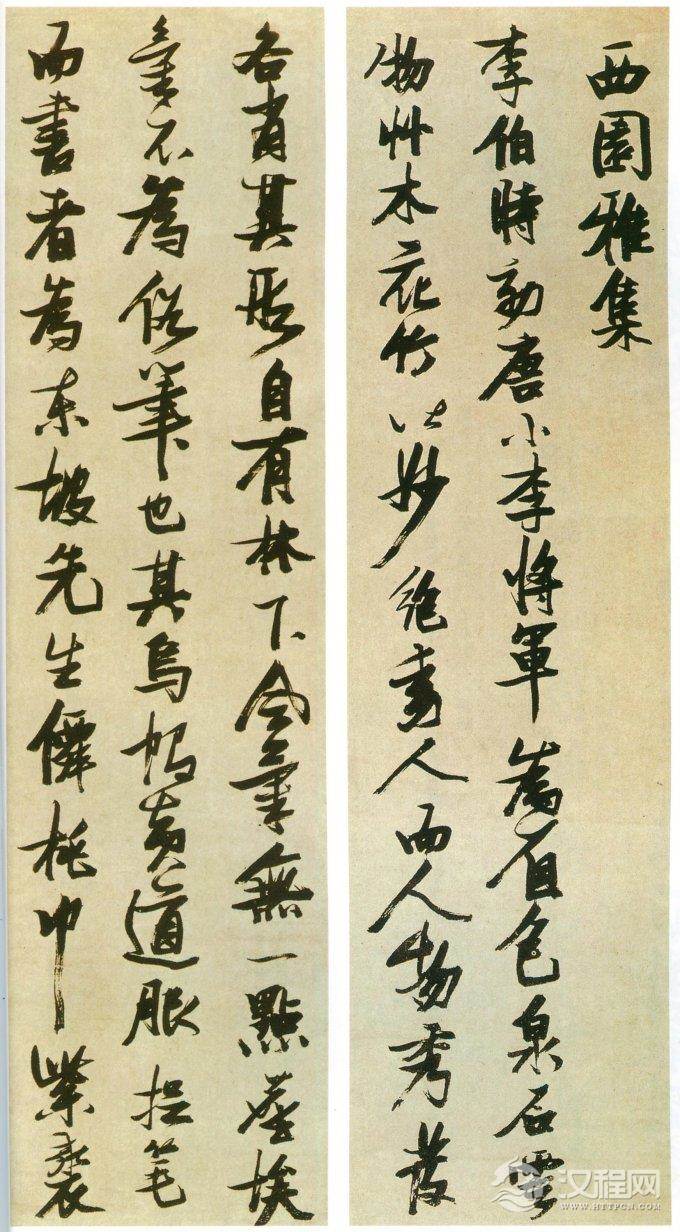 西園雅集
李伯時効唐小李將軍為着色泉石雲
物艸木花竹皆妙絶動人而人物秀發
各肖其形自有林下風氣無一點塵埃
氣不為俗筆也其烏帽黄道服捉筆
而書者為東坡先生僊桃巾紫裘
汉程网
WWW.HTTPCN.COM